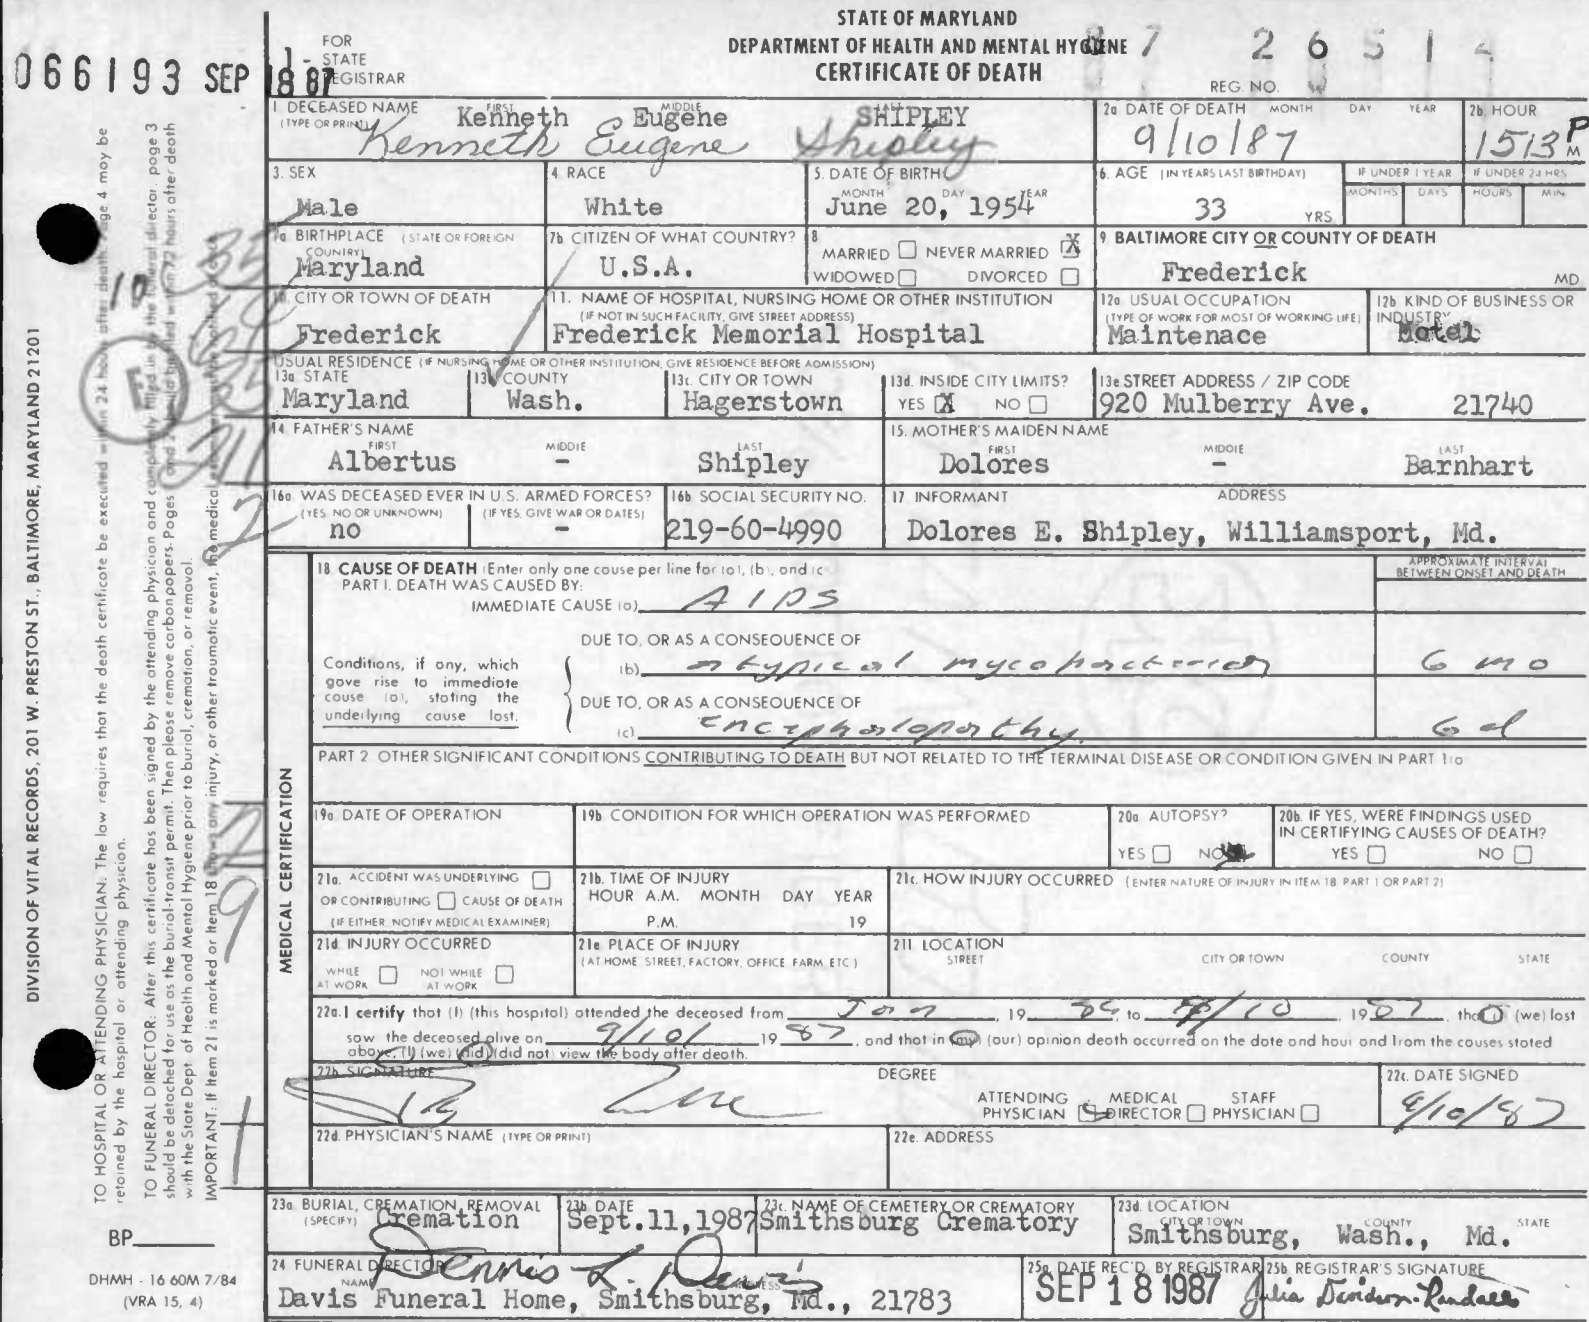 STATE OF MARYLAND
DEPARTMENT OF HEALTH AND MENTAL HYGIENE
CERTIFICATE OF DEATH
066193 SEP 18 87
1 - FOR STATE REGISTRAR
87 26514
REG. NO.
1 DECEASED NAME (TYPE OR PRINT) FIRST MIDDLE
Kenneth Eugene SHIPLEY
Kenneth Eugene Shipley
2a DATE OF DEATH MONTH DAY YEAR
9/10/87
2b. HOUR
1513 P M
3. SEX
Male
4. RACE
White
5. DATE OF BIRTH MONTH DAY YEAR
June 20, 1954
6. AGE (IN YEARS LAST BIRTHDAY)
33 YRS
IF UNDER 1 YEAR MONTHS DAYS
IF UNDER 24 HRS HOURS MIN.
7a BIRTHPLACE (STATE OR FOREIGN COUNTRY)
Maryland
7b. CITIZEN OF WHAT COUNTRY?
U.S.A.
8 MARRIED NEVER MARRIED X
WIDOWED DIVORCED
9. BALTIMORE CITY OR COUNTY OF DEATH
Frederick MD
10. CITY OR TOWN OF DEATH
Frederick
11. NAME OF HOSPITAL, NURSING HOME OR OTHER INSTITUTION
(IF NOT IN SUCH FACILITY, GIVE STREET ADDRESS)
Frederick Memorial Hospital
12a USUAL OCCUPATION
(TYPE OF WORK FOR MOST OF WORKING LIFE)
Maintenace
12b KIND OF BUSINESS OR INDUSTRY
Motel
USUAL RESIDENCE (IF NURSING HOME OR OTHER INSTITUTION, GIVE RESIDENCE BEFORE ADMISSION)
13a STATE
Maryland
13b COUNTY
Wash.
13c. CITY OR TOWN
Hagerstown
13d. INSIDE CITY LIMITS?
YES X NO
13e STREET ADDRESS / ZIP CODE
920 Mulberry Ave. 21740
14. FATHER'S NAME FIRST MIDDLE LAST
Albertus - Shipley
15. MOTHER'S MAIDEN NAME FIRST MIDDLE LAST
Dolores - Barnhart
16a. WAS DECEASED EVER IN U.S. ARMED FORCES?
(YES, NO OR UNKNOWN) (IF YES, GIVE WAR OR DATES)
no -
16b SOCIAL SECURITY NO.
219-60-4990
17 INFORMANT ADDRESS
Dolores E. Shipley, Williamsport, Md.
18 CAUSE OF DEATH (Enter only one cause per line for (a), (b), and (c)
APPROXIMATE INTERVAL BETWEEN ONSET AND DEATH
PART I. DEATH WAS CAUSED BY:
IMMEDIATE CAUSE (a) AIDS
DUE TO, OR AS A CONSEQUENCE OF
(b) atypical mycobacterial 6 mo
Conditions, if any, which gave rise to immediate cause (a), stating the underlying cause last.
DUE TO, OR AS A CONSEQUENCE OF
(c) encephalopathy 6 d
PART 2 OTHER SIGNIFICANT CONDITIONS CONTRIBUTING TO DEATH BUT NOT RELATED TO THE TERMINAL DISEASE OR CONDITION GIVEN IN PART 1(a)
MEDICAL CERTIFICATION
19a DATE OF OPERATION
19b CONDITION FOR WHICH OPERATION WAS PERFORMED
20a AUTOPSY?
YES NO
20b. IF YES, WERE FINDINGS USED IN CERTIFYING CAUSES OF DEATH?
YES NO
21a. ACCIDENT WAS UNDERLYING
OR CONTRIBUTING CAUSE OF DEATH
(IF EITHER, NOTIFY MEDICAL EXAMINER)
21b. TIME OF INJURY
HOUR A.M. MONTH DAY YEAR
P.M. 19
21c. HOW INJURY OCCURRED (ENTER NATURE OF INJURY IN ITEM 18 PART 1 OR PART 2)
21d INJURY OCCURRED
WHILE AT WORK NOT WHILE AT WORK
21e PLACE OF INJURY
(AT HOME, STREET, FACTORY, OFFICE FARM, ETC.)
21f LOCATION
STREET CITY OR TOWN COUNTY STATE
22a. I certify that (I) (this hospital) attended the deceased from Jan, 19 86, to 9/10 1987, that (I) (we) last
saw the deceased alive on 9/10/ 19 87, and that in (my) (our) opinion death occurred on the date and hour and from the causes stated
above, (I) (we) (did) (did not) view the body after death.
22b. SIGNATURE
DEGREE
ATTENDING PHYSICIAN MEDICAL DIRECTOR STAFF PHYSICIAN
22c. DATE SIGNED
9/10/87
22d. PHYSICIAN'S NAME (TYPE OR PRINT)
22e. ADDRESS
23a BURIAL, CREMATION, REMOVAL (SPECIFY)
Cremation
23b. DATE
Sept.11,1987
23c. NAME OF CEMETERY OR CREMATORY
Smithsburg Crematory
23d. LOCATION CITY OR TOWN COUNTY STATE
Smithsburg, Wash., Md.
24 FUNERAL DIRECTOR NAME ADDRESS
Dennis L. Davis
Davis Funeral Home, Smithsburg, Md., 21783
25a. DATE REC'D. BY REGISTRAR
SEP 18 1987
25b. REGISTRAR'S SIGNATURE
Julia Davidson-Randall
DIVISION OF VITAL RECORDS, 201 W. PRESTON ST., BALTIMORE, MARYLAND 21201
TO HOSPITAL OR ATTENDING PHYSICIAN: The law requires that the death certificate be executed within 24 hours after death. Page 4 may be
retained by the hospital or attending physician.
TO FUNERAL DIRECTOR: After this certificate has been signed by the attending physician and completely filled in by the funeral director, page 3
should be detached for use as the burial-transit permit. Then please remove carbon papers. Pages 1 and 2 should be filed within 72 hours after death
with the State Dept. of Health and Mental Hygiene prior to burial, cremation, or removal.
IMPORTANT: If Item 21 is marked or Item 18 shows any injury, or other traumatic event, the medical
BP
DHMH - 16 60M 7/84
(VRA 15, 4)